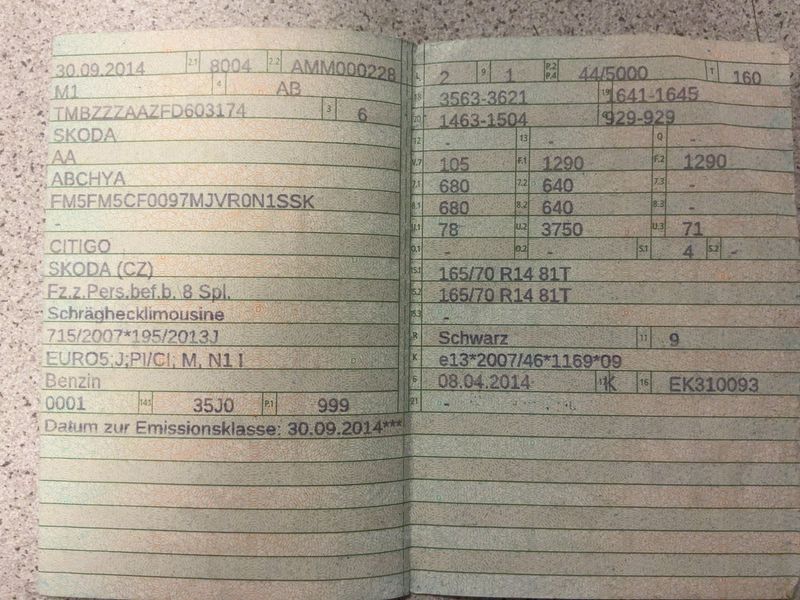 30.09.2014 2.1 8004 2.2 AMM000228
M1 4 AB
TMBZZZAAZFD603174 3 6
SKODA
AA
ABCHYA
FM5FM5CF0097MJVR0N1SSK
-
CITIGO
SKODA (CZ)
Fz.z.Pers.bef.b. 8 Spl.
Schräghecklimousine
715/2007*195/2013J
EURO5;J;PI/CI, M, N1 I
Benzin
0001 14.1 35J0 P.1 999
Datum zur Emissionsklasse: 30.09.2014***
L 2 9 1 P.2 P.4 44/5000 T 160
18 3563-3621 19 1641-1645
20 1463-1504 929-929
12 - 13 - Q -
V.7 105 F.1 1290 F.2 1290
7.1 680 7.2 640 7.3 -
8.1 680 8.2 640 8.3 -
U.1 78 U.2 3750 U.3 71
O.1 - O.2 - S.1 4 S.2 -
15.1 165/70 R14 81T
15.2 165/70 R14 81T
15.3 -
R Schwarz 11 9
K e13*2007/46*1169*09
6 08.04.2014 17 K 16 EK310093
21 -